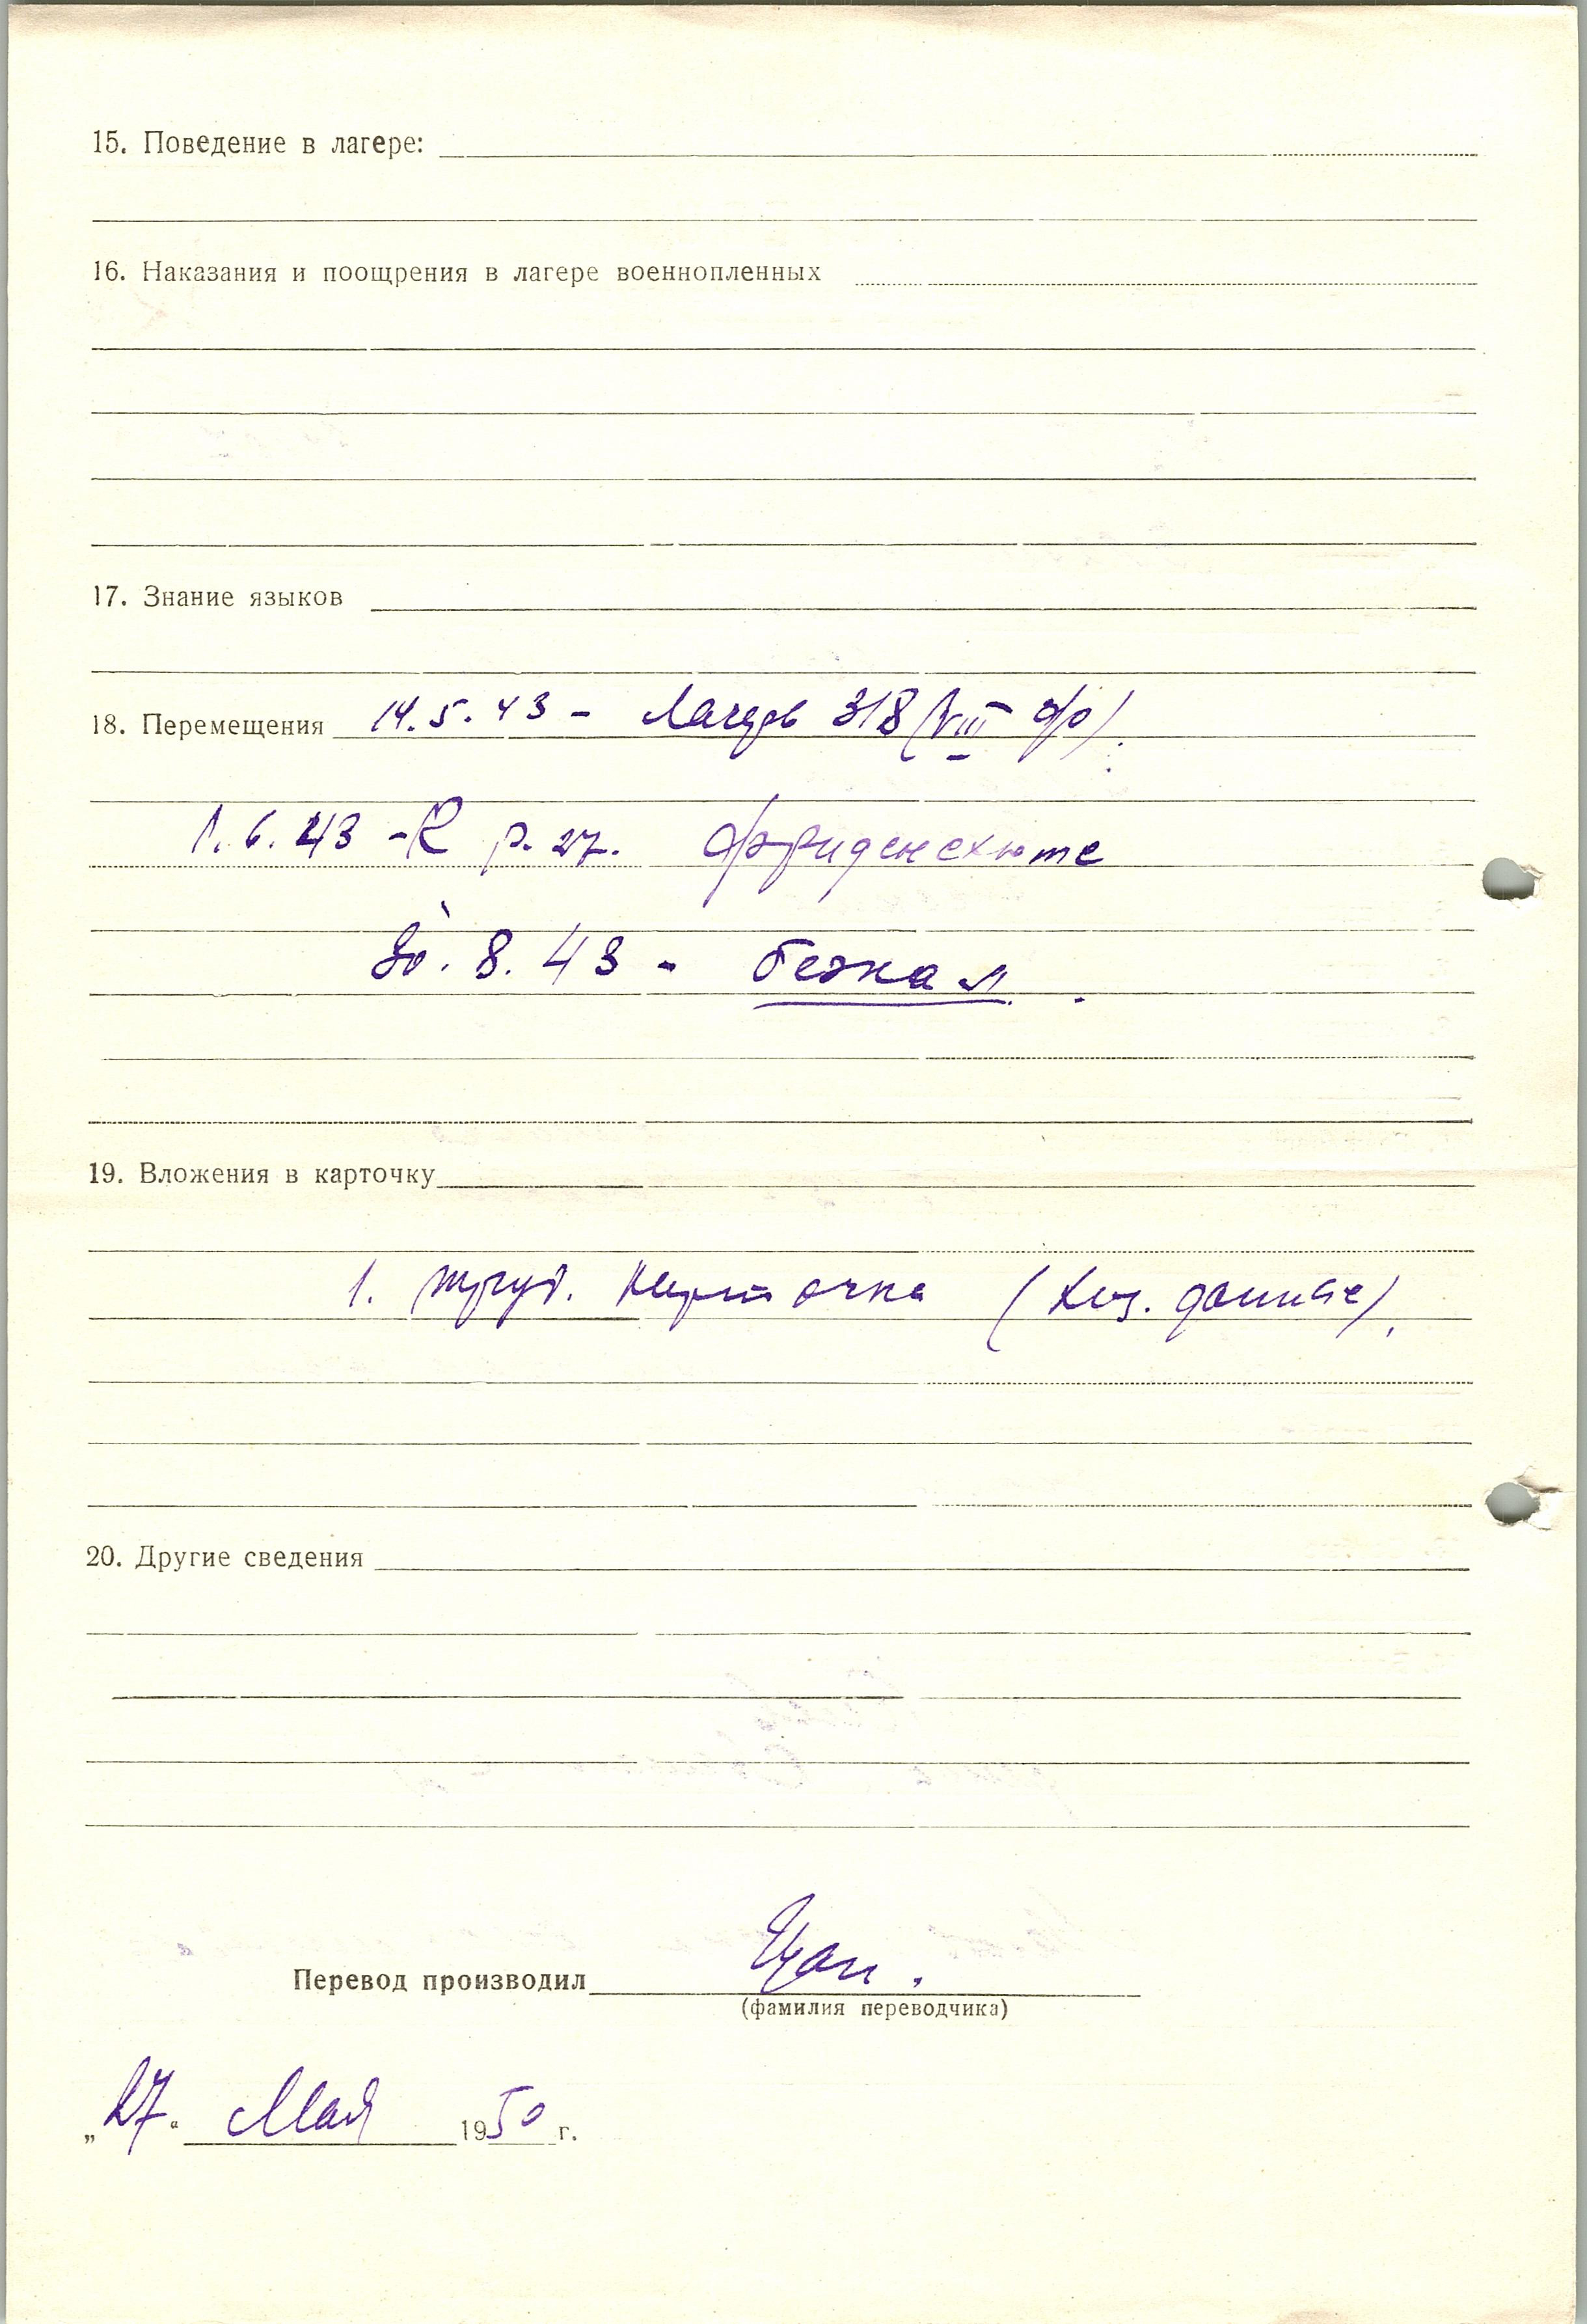 15. Поведение в лагере:
16. Наказания и поощрения в лагере военнопленных
17. Знание языков
18. Перемещения 14.5.43 - Лагерь 318 (VIII ф)
1.6.43 - R р. 27. Фриденсхюте
30. 8. 43 - бежал.
19. Вложения в карточку
1. труд. карточка ( данные)
20. Другие сведения
Перевод производил
(фамилия переводчика)
„27“ Мая 1950 г.